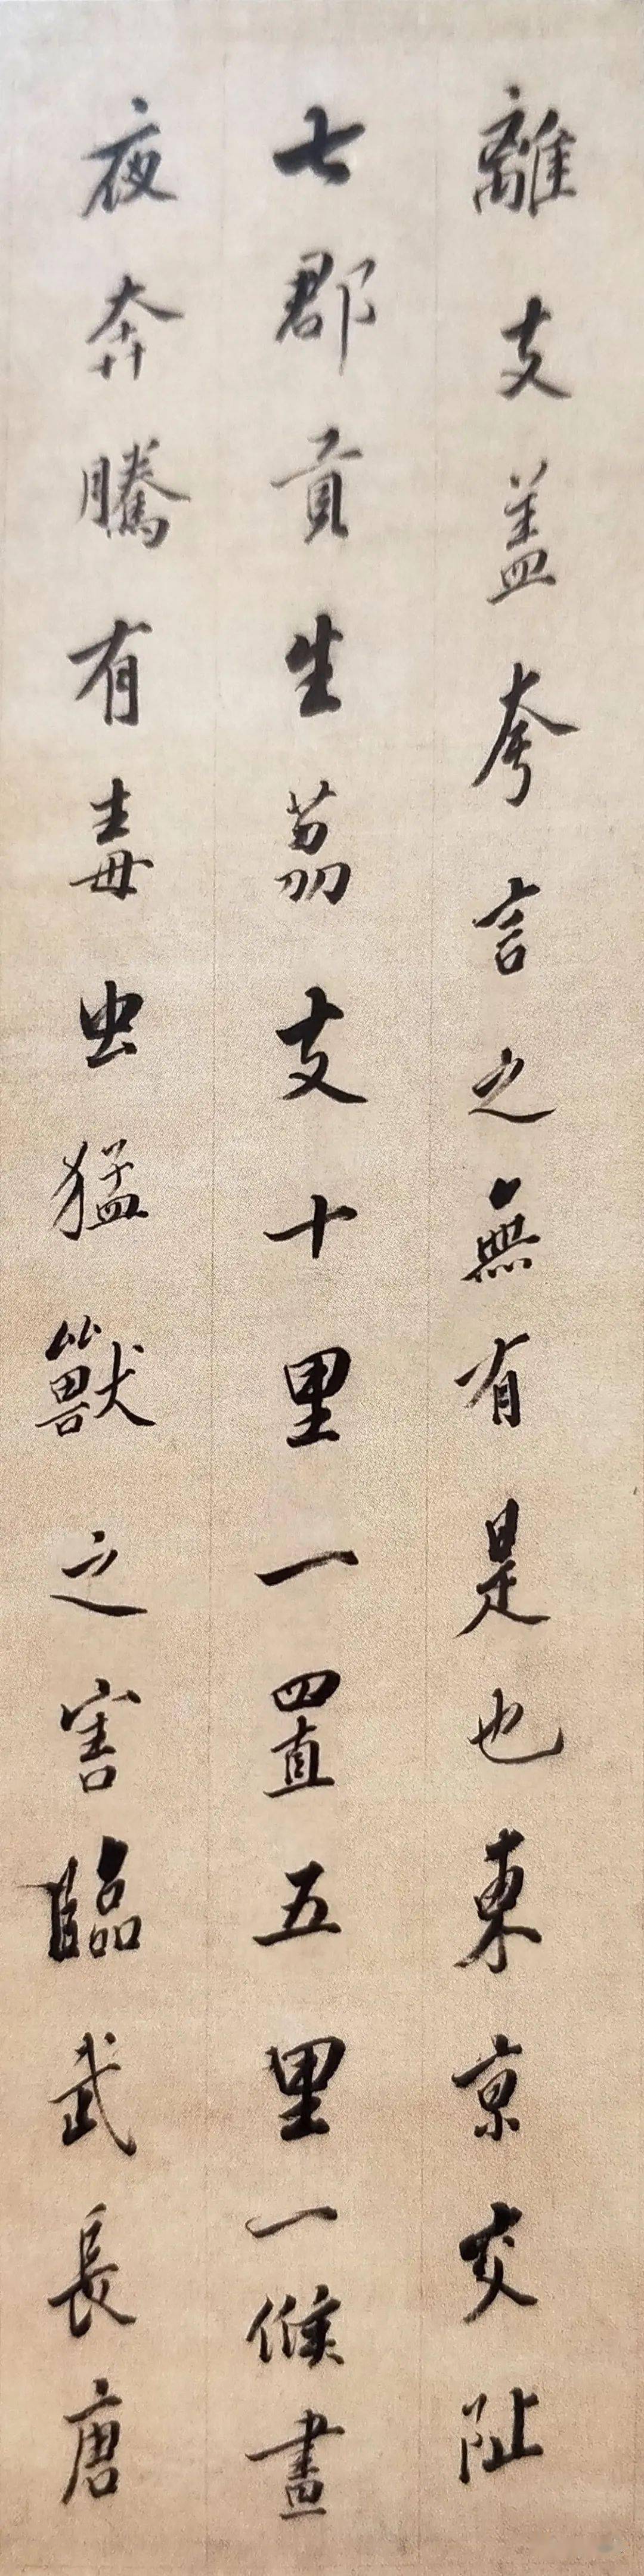 離支盖夸言之無有是也東京交阯
七郡貢生荔支十里一置五里一候晝
夜奔騰有毒虫猛獸之害臨武長唐